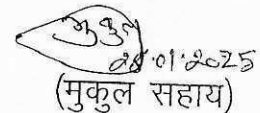 मुकुल
28.01.2025
(मुकुल सहाय)